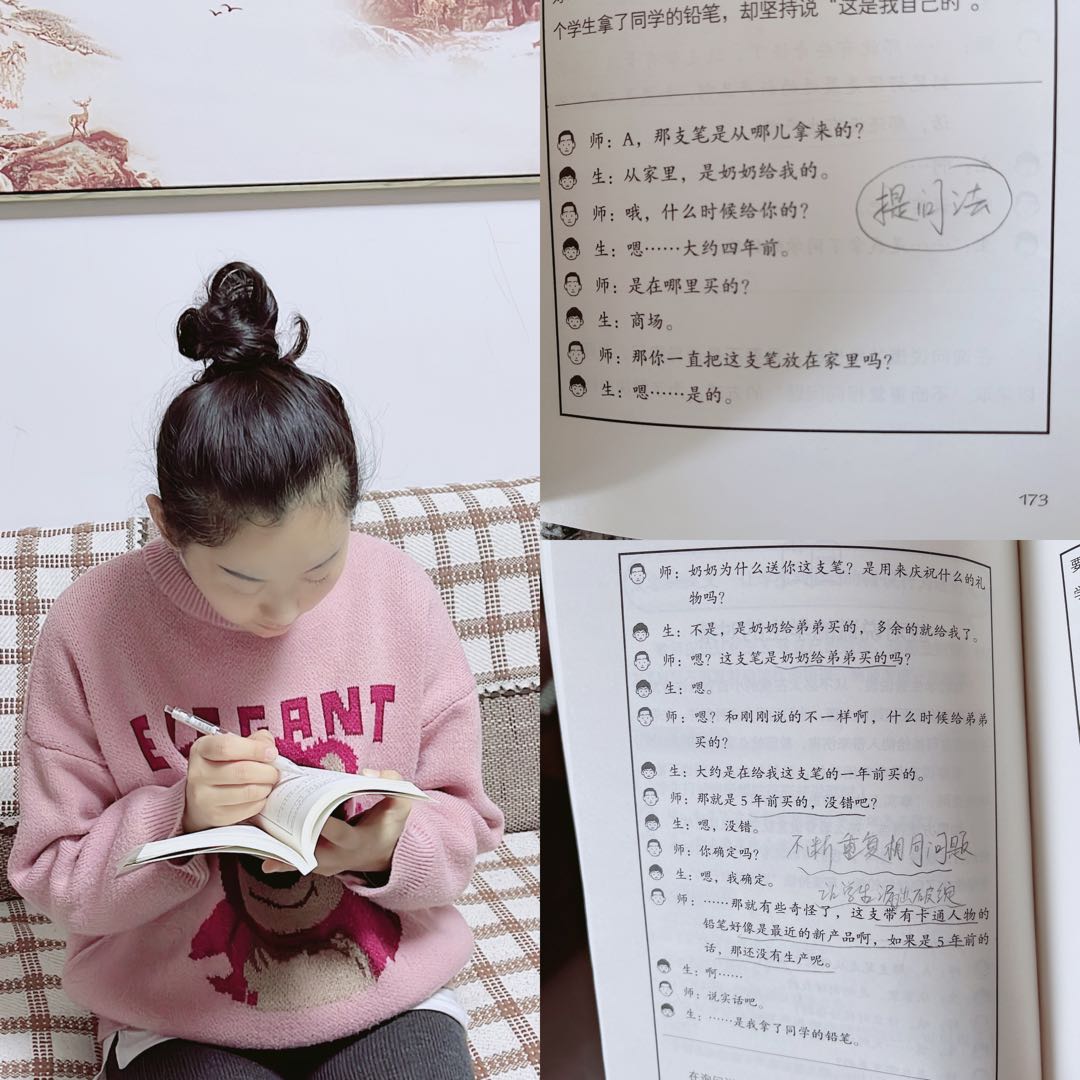 ELEGANT
个学生拿了同学的铅笔，却坚持说“这是我自己的”。
师：A，那支笔是从哪儿拿来的？
生：从家里，是奶奶给我的。
师：哦，什么时候给你的？
生：嗯……大约四年前。
师：是在哪里买的？
生：商场。
师：那你一直把这支笔放在家里吗？
生：嗯……是的。
提问法
173
师：奶奶为什么送你这支笔？是用来庆祝什么的礼
物吗？
生：不是，是奶奶给弟弟买的，多余的就给我了。
师：嗯？这支笔是奶奶给弟弟买的吗？
生：嗯。
师：嗯？和刚刚说的不一样啊，什么时候给弟弟
买的？
生：大约是在给我这支笔的一年前买的。
师：那就是5年前买的，没错吧？
生：嗯，没错。
师：你确定吗？
生：嗯，我确定。
不断重复相同问题
让学生漏出破绽
师：……那就有些奇怪了，这支带有卡通人物的
铅笔好像是最近的新产品啊，如果是5年前的
话，那还没有生产呢。
生：啊……
师：说实话吧。
生：……是我拿了同学的铅笔。
要
学